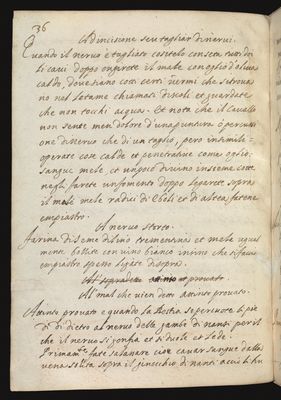 36
A d'incisione seu tagliar di nervi.
Quando il nervo è tagliato cositelo con seta tutti doi
li cavi doppo ongerete il male con oglio d'oliva
caldo, dove siano cotti certi vermi che si trova
no nel letame chiamati disoli et guardate
che non tocchi acqua. Et nota che il cavallo
non sente men dolore d'una puntura ò percussi
one di nervo che di un taglio, però in simile
operate cose calde et penetrative come oglio,
sangue mele et un poco di vino insieme cotte
negli farete un fomento doppo legarete sopra
il male mele radici d'Eboli et di altea fatene
empiastro.
A nervo storto.
Farina di seme di lino trementina et mele ugual
mente bollite con vino bianco in fino che si facci
empiastro spesso legate di sopra.
All' sopradetto attinto et provato.
Al' mal che vien detto Attinto provato.
Attinto provato e quando la Bestia si percuote li pie
di di dietro al nervo delle gambe di nanti per il
che il nervo si gonfia et si duole et lede.
Primamte. fate salassare cioè cavar sangue dalla
vena solita sopra il ginocchio di nanti acciò li hu